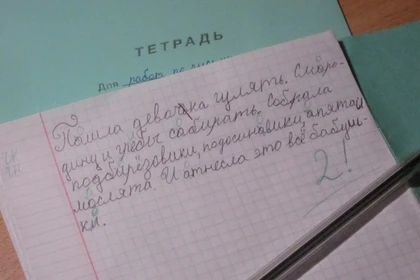 ТЕТРАДЬ
Для работ по
Пошла девачка гулять. Сморо-
дину и грёбы сабирать. Собрала
подбирёзовики, подосиновики, апята и
мослята. И атнесла это всё бабуш-
ки.
2!